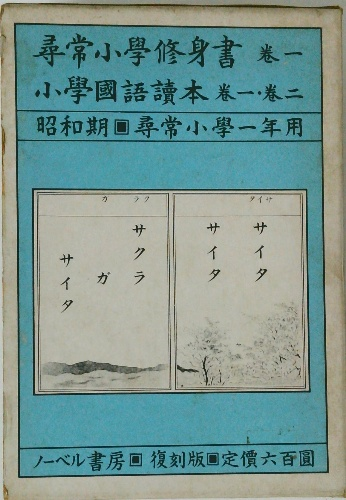 尋常小學修身書 巻一
小學國語讀本 巻一・巻二
昭和期▣尋常小學一年用
サイタ
サイタ
サイタ
サクラ
ガ
サイタ
クラ
ガ
ノーベル書房▣復刻版▣定價六百圓